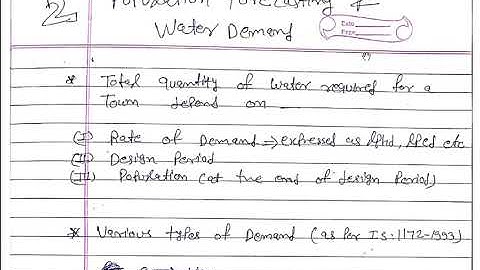 2. Population Forecasting &
Water Demand
Date
Page
* Total quantity of water required for a
Town depend on
(I) Rate of Demand ⇒ expressed as
(II) Design Period
(III) Population (at the end of design Period)
* Various types of Demand (as Per IS:1172-1993)